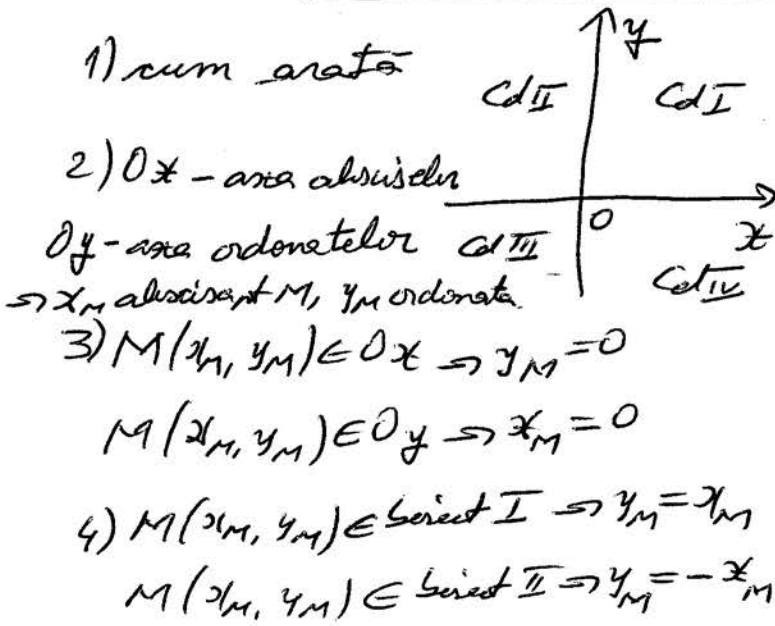 1) cum arată
y
Cd II
Cd I
2) Ox - axa absciselor
Oy - axa ordonatelor
Cd III
O
x
Cd IV
⇒ x_M abscisa pt M, y_M ordonata.
3) M(x_M, y_M) ∈ Ox ⇒ y_M = 0
M(x_M, y_M) ∈ Oy ⇒ x_M = 0
4) M(x_M, y_M) ∈ bisect I ⇒ y_M = x_M
M(x_M, y_M) ∈ bisect II ⇒ y_M = -x_M